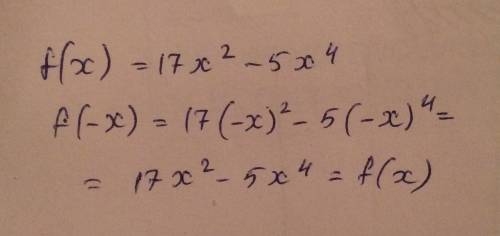 f(x) = 17x² - 5x⁴
f(-x) = 17(-x)² - 5(-x)⁴ =
= 17x² - 5x⁴ = f(x)